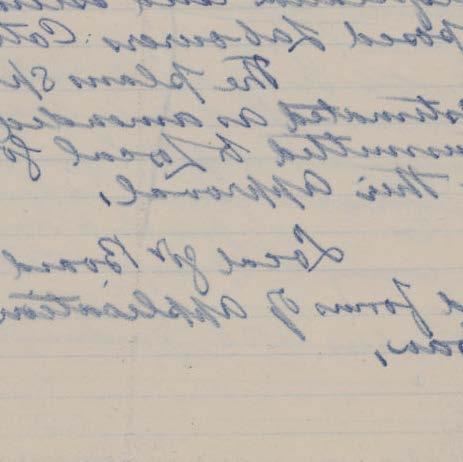 posed Labourers Cott
The plans Sp
estimated as amended
submitted to Local G
their approval,
Local Gt Board
d forms of application
oan,